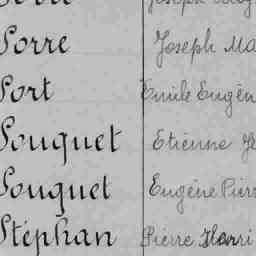 Sorre Joseph Ma
Sort Emile Eugèn
Souquet Etienne Je
Souquet Eugène Pierr
Stéphan Pierre Henri